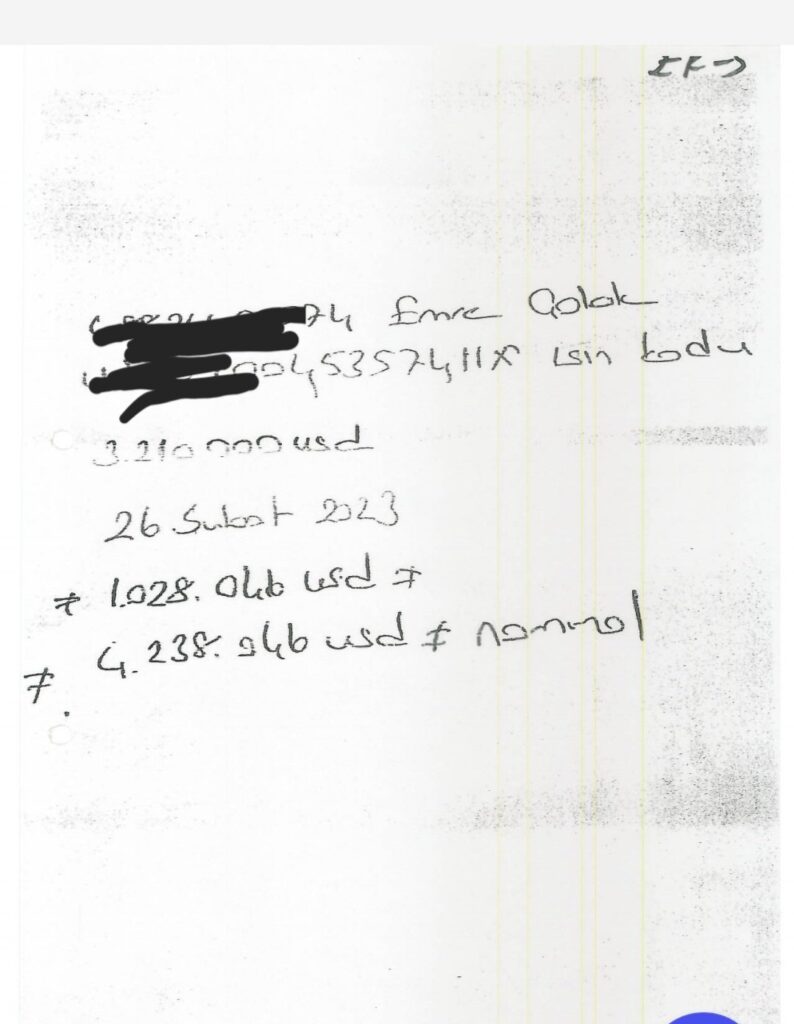 74 Emre Çolak
004535741 isin kodu
3.210 000 usd
26 Subat 2023
≠ 1.028. 046 usd ≠
≠ 4. 238. 046 usd ≠ nominal